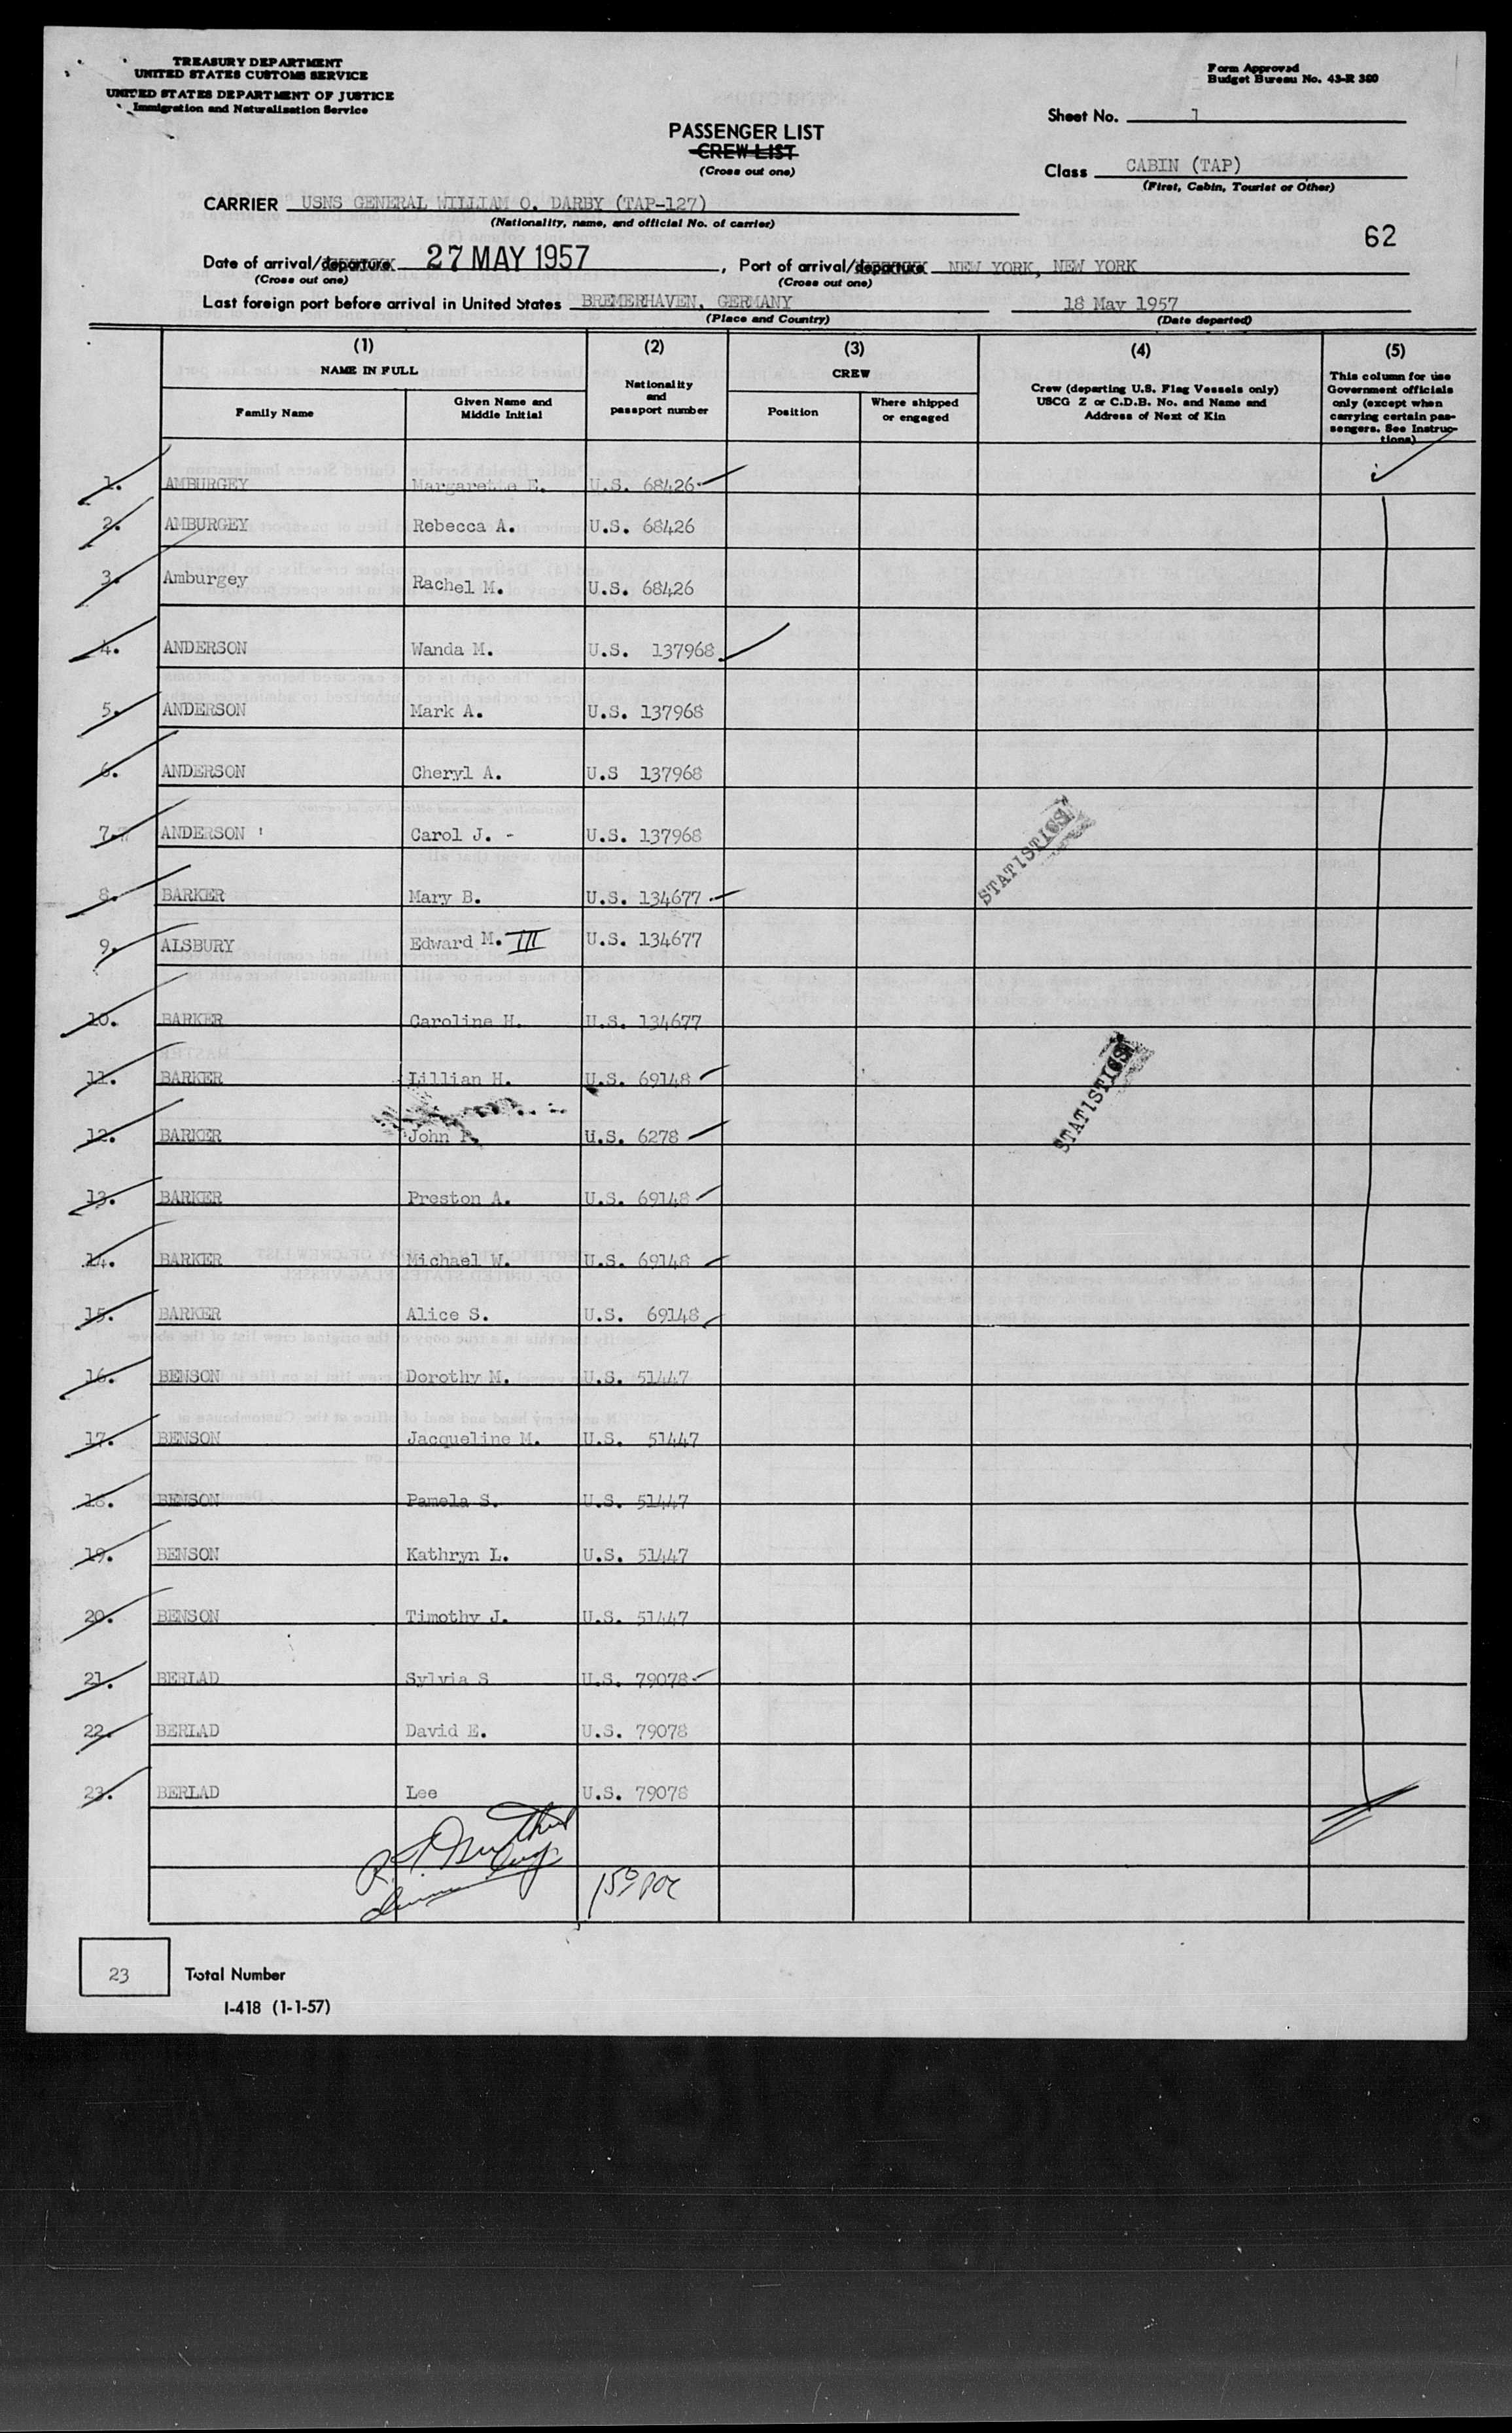 TREASURY DEPARTMENT
UNITED STATES CUSTOMS SERVICE
UNITED STATES DEPARTMENT OF JUSTICE
Immigration and Naturalization Service
Form Approved
Budget Bureau No. 43-R 380
Sheet No. 1
PASSENGER LIST
CREW LIST
(Cross out one)
Class CABIN (TAP)
(First, Cabin, Tourist or Other)
CARRIER USNS GENERAL WILLIAM O. DARBY (TAP-127)
(Nationality, name, and official No. of carrier)
62
Date of arrival/departure 27 MAY 1957, Port of arrival/departure NEW YORK, NEW YORK
(Cross out one) (Cross out one)
Last foreign port before arrival in United States BREMERHAVEN, GERMANY 18 May 1957
(Place and Country) (Date departed)
(1) (2) (3) (4) (5)
NAME IN FULL
Family Name
Given Name and
Middle Initial
Nationality
and
passport number
CREW
Position
Where shipped
or engaged
Crew (departing U.S. Flag Vessels only)
USCG Z or C.D.B. No. and Name and
Address of Next of Kin
This column for use
Government officials
only (except when
carrying certain pas-
sengers. See Instruc-
tions)
1. AMBURGEY Margarette E. U.S. 68426
2. AMBURGEY Rebecca A. U.S. 68426
3. Amburgey Rachel M. U.S. 68426
4. ANDERSON Wanda M. U.S. 137968
5. ANDERSON Mark A. U.S. 137968
6. ANDERSON Cheryl A. U.S 137968
7. ANDERSON Carol J. - U.S. 137968
STATISTICS
8. BARKER Mary B. U.S. 134677
9. ALSBURY Edward M. III U.S. 134677
10. BARKER Caroline H. U.S. 134677
11. BARKER Lillian H. U.S. 69148
STATISTICS
12. BARKER John U.S. 6278
13. BARKER Preston A. U.S. 69148
14. BARKER Michael W. U.S. 69148
15. BARKER Alice S. U.S. 69148
16. BENSON Dorothy M. U.S. 51447
17. BENSON Jacqueline M. U.S. 51447
18. BENSON Pamela S. U.S. 51447
19. BENSON Kathryn L. U.S. 51447
20. BENSON Timothy J. U.S. 51447
21. BERLAD Sylvia S U.S. 79078
22. BERLAD David E. U.S. 79078
23. BERLAD Lee U.S. 79078
23 Total Number
I-418 (1-1-57)